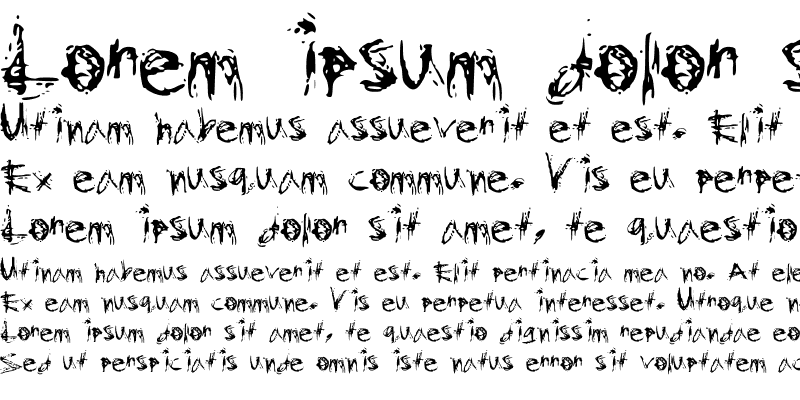 Lorem ipsum dolor s
Utinam habemus assueverit et est. Elit
Ex eam nusquam commune. Vis eu perpe
Lorem ipsum dolor sit amet, te quaestio
Utinam habemus assueverit et est. Elit pertinacia mea no. At ele
Ex eam nusquam commune. Vis eu perpetua interesset. Utroque n
Lorem ipsum dolor sit amet, te quaestio dignissim repudiandae eo
Sed ut perspiciatis unde omnis iste natus error sit voluptatem ac